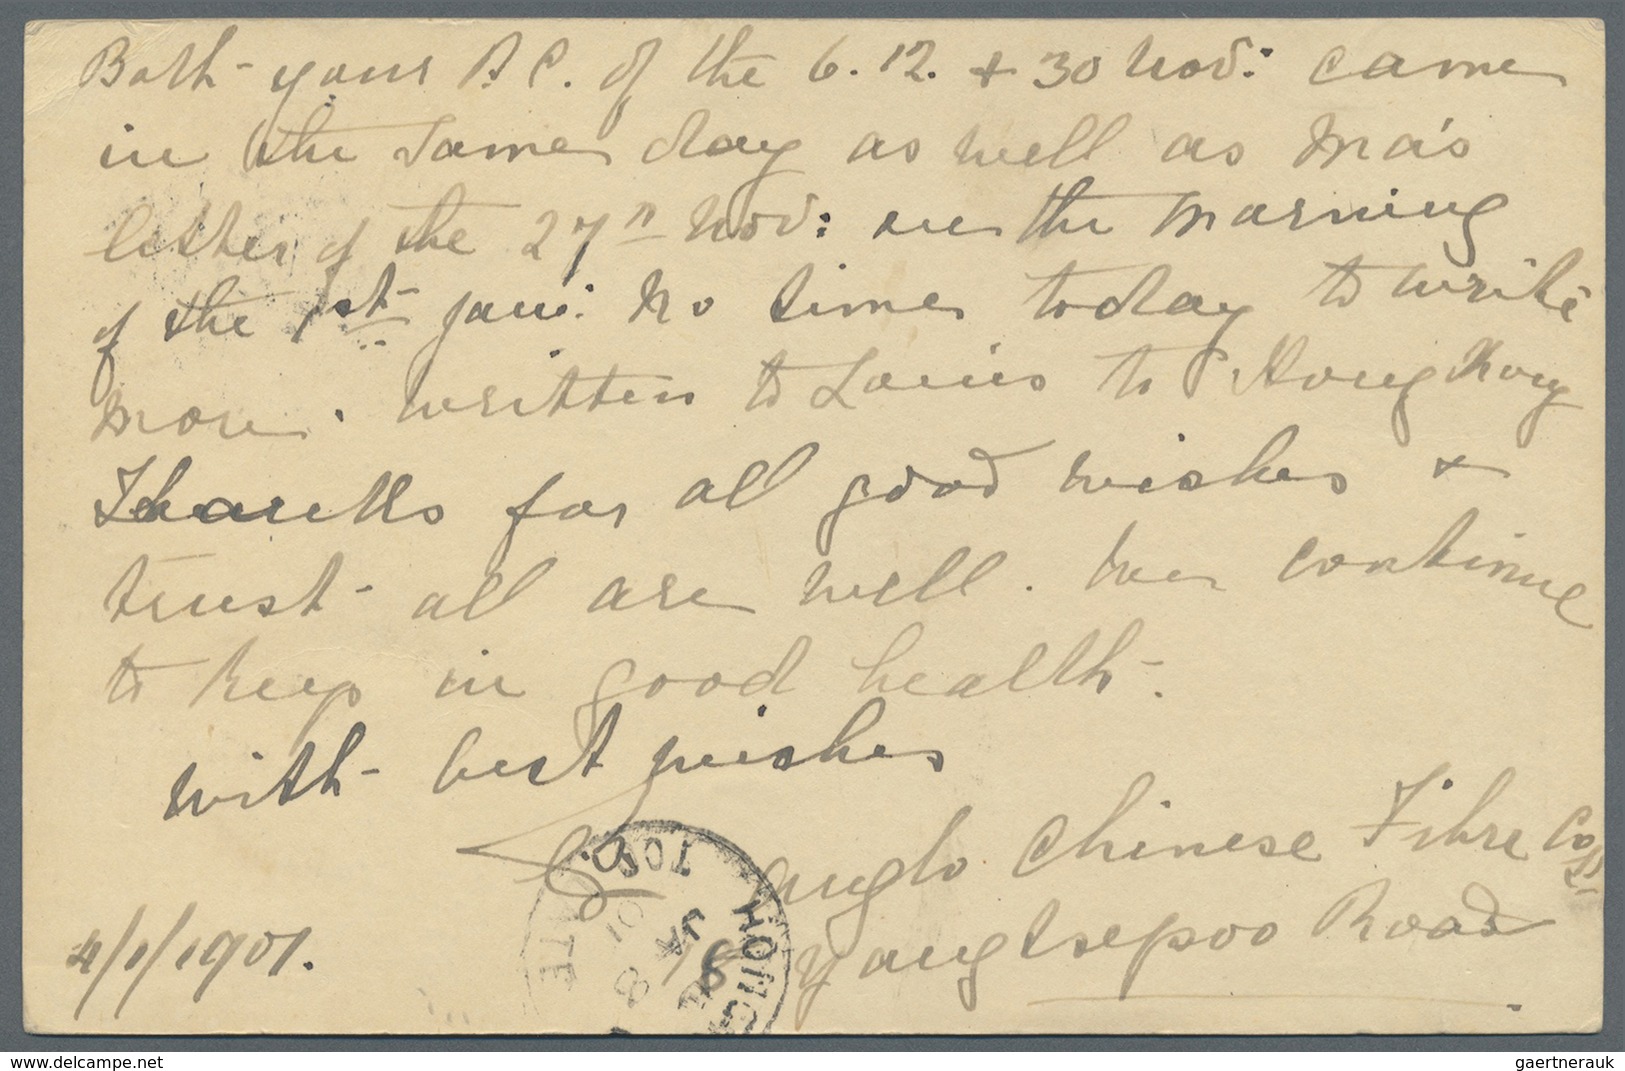 Both your P.C. of the 6.12. + 30 Nov: came
in the same day as well as Ma's
letter of the 27th Nov: on the morning
of the 1st Jan: No time today to write
more. Written to Louis to Hong Kong
Thanks for all good wishes +
trust all are well. We continue
to keep in good health.
with best wishes
Anglo Chinese Fibre Co
Yangtsepoo Road
4/1/1901.
HONG
JA
8
01
TE
the-stamp-web.com
gaertnerauk